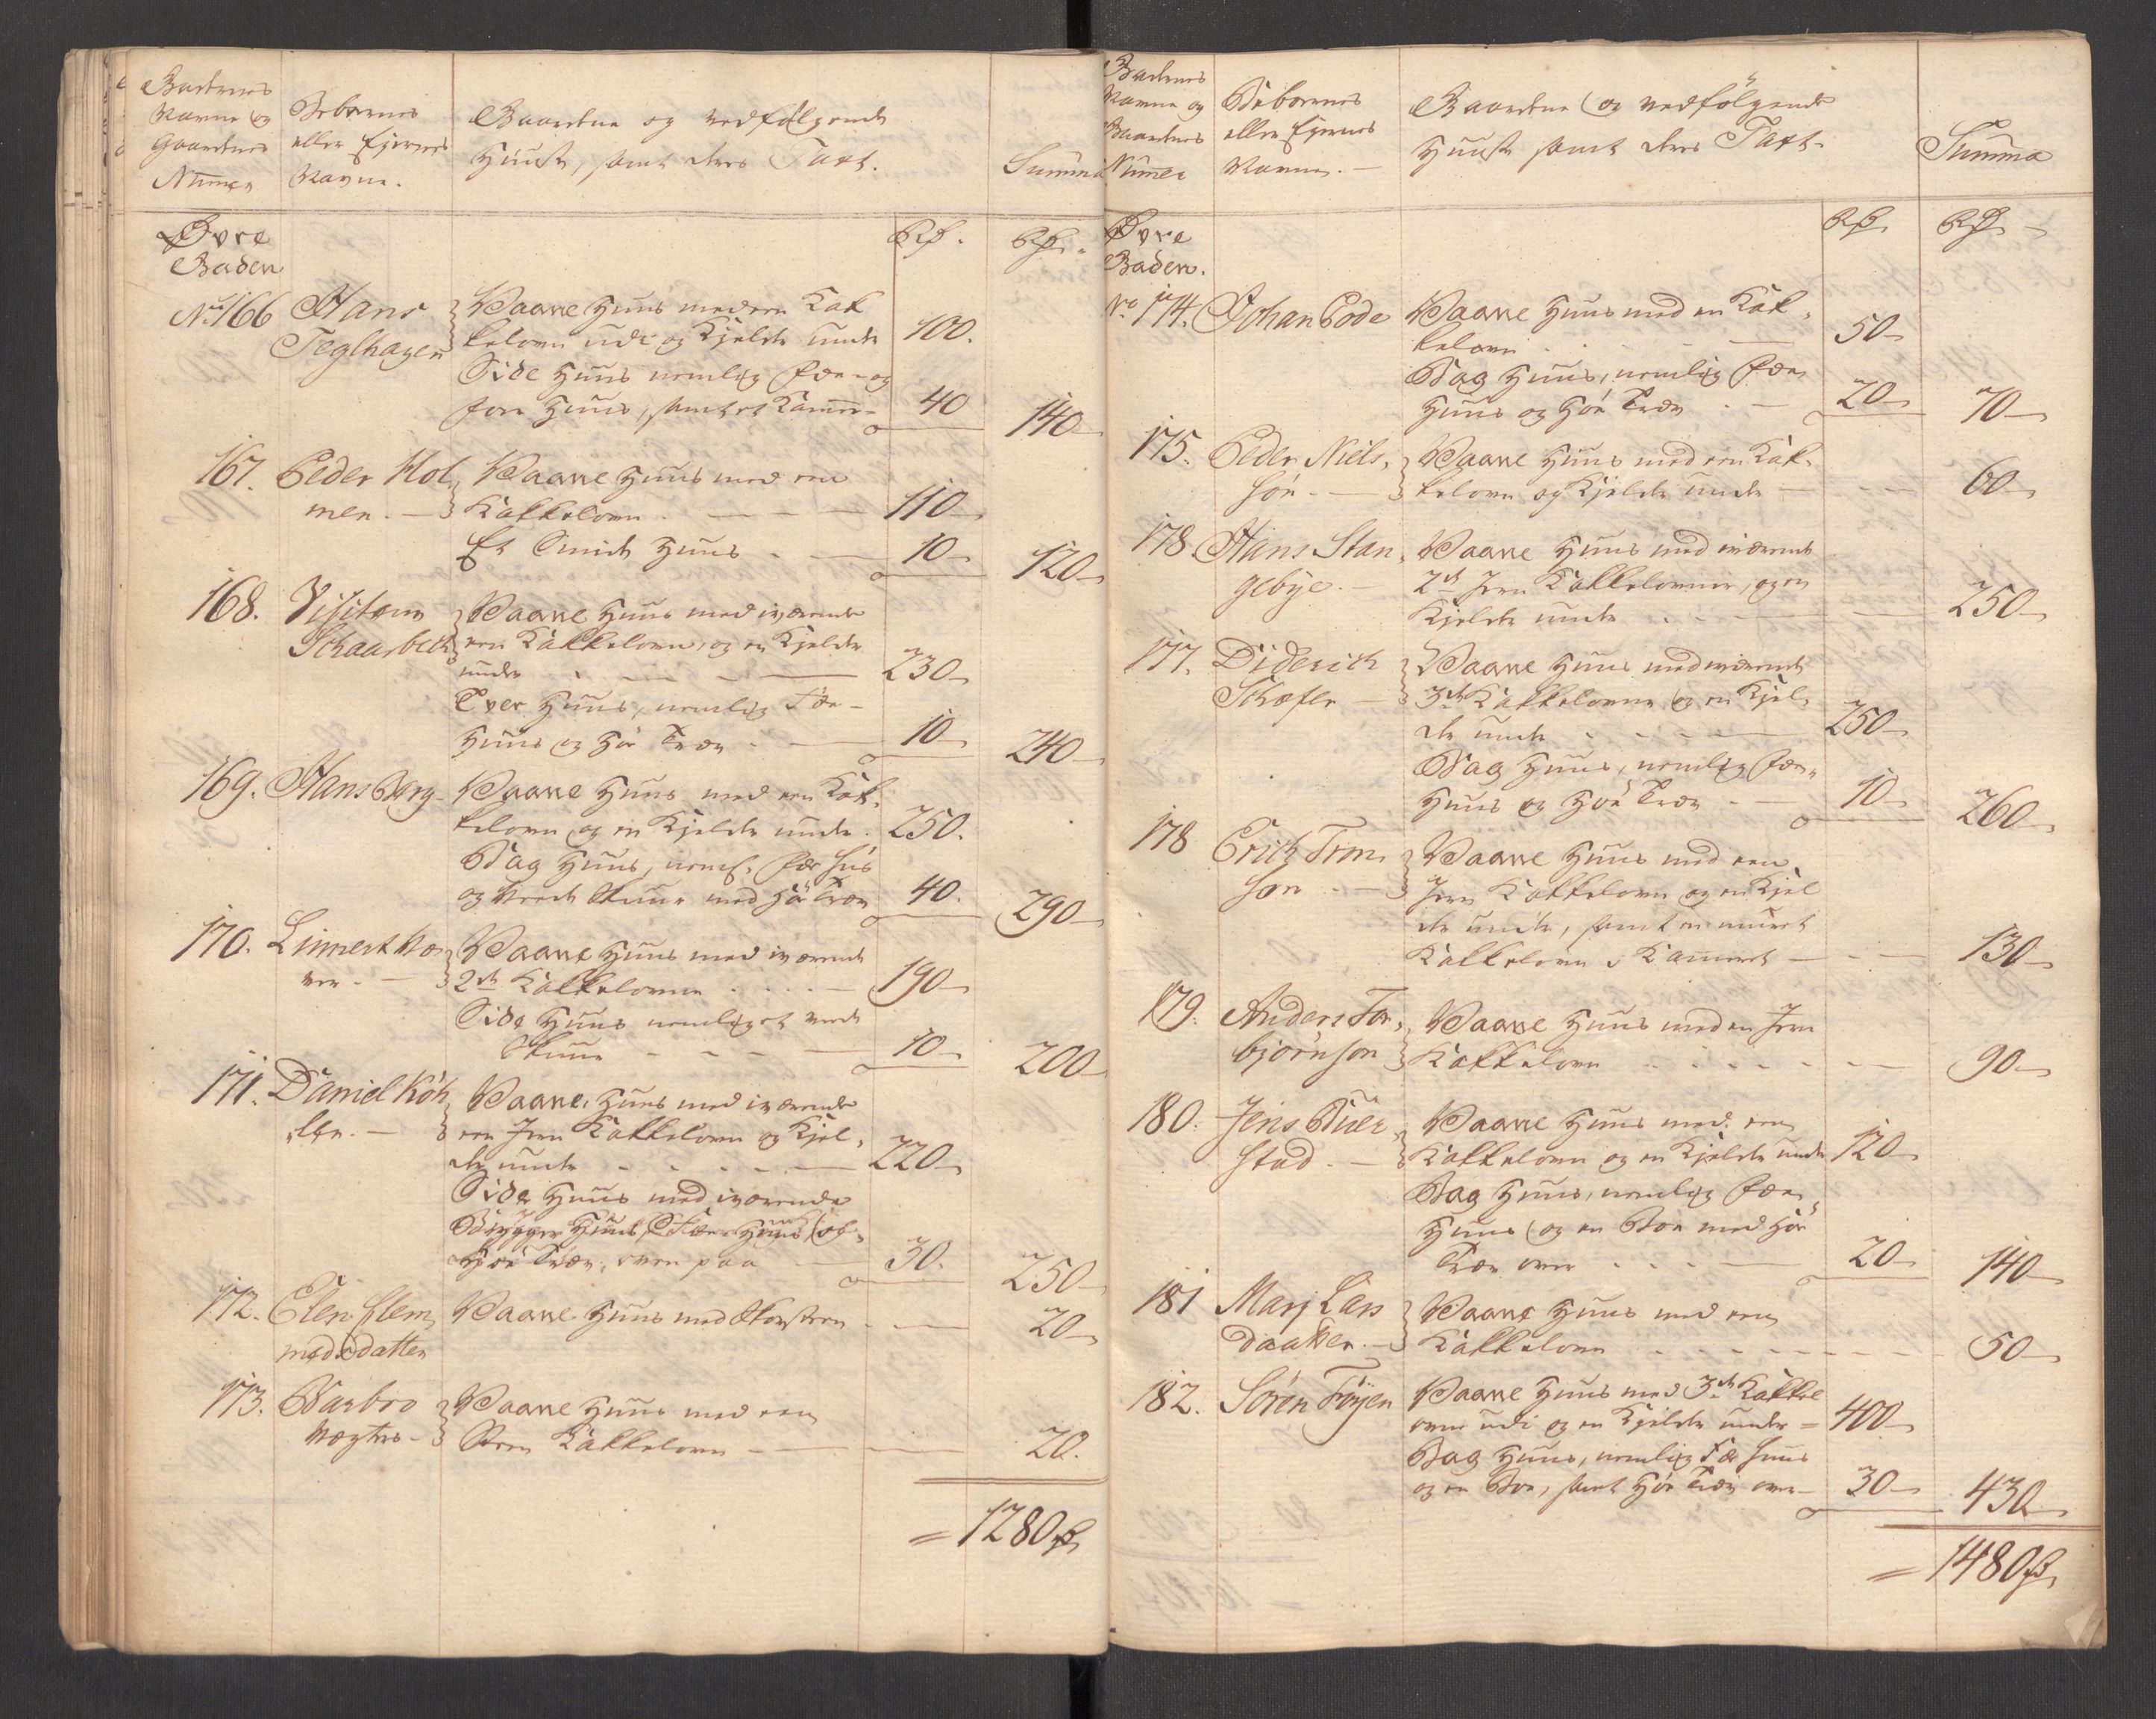 Gadernes
Navne og
Gaardenes
Numer
Beboernes
eller Ejernes
Navne.
Gaardene og vedfølgende
Huuse, samt deres Taxt.
Summa
Øvre
Gaden
Rd.
Rd.
No. 166 Hans
Teglhagen
Vaane Huus med en Kak
kelovn udi og Kjelder under 100.
Side Huus nemlig Fæe- og
Torv Huus, samt et Kammer 40
140
167. Peder Hol,
men.
Vaane Huus med een
Kakkelovn 110
Et Smide Huus 10
120
168. Visiteur
Schaarbech
Vaane Huus med iværende
een Kakkelovn, og en Kjelder
under 230
Tver Huus, nemlig Fæe-
Huus og Hør Træv 10
240
169. Hans Berg
Vaane Huus med een Kak,
kelovn og en Kjelder under 250.
Bag Huus, neml. Fæe Huus
og Veede Skuur med Hør Træv 40.
290
170. Linnert
ver.
Vaane Huus med iværende
2de Kakkelovne 190
Side Huus nemlig et Veed
Skuur 10
200
171. Daniel Köh
ler.
Vaane Huus med iværende
een Jern Kakkelovn og Kjel,
der under 220
Side Huus med iværende
Brygger Huus, Fæe Huus og
Hør Træv, oven paa 30.
250
172. Elen Clem
medsdatter
Vaane Huus med Skorsteen 20
173. Barbro
Vægters
Vaane Huus med een
Steen Kakkelovn 20.
= 1280 Rd
Gadernes
Navne og
Gaardenes
Numer
Beboernes
eller Ejernes
Navne.
Gaardene og vedfølgende
Huuse samt deres Taxt
Summa
Øvre
Gaden.
Rd.
Rd.
No. 174. Johan Bode
Vaane Huus med en Kak,
kelovn 50
Bag Huus, nemlig Fæe
Huus og Hør Træv 20
70
175. Peder Niels,
søn.
Vaane Huus med een Kak,
kelovn og Kjelder under 60
178. Hans Stan,
gebye.
Vaane Huus med iværende
2de Jern Kakkelovner, og en
Kjelder under 250
177. Diderich
Schæfer
Vaane Huus med iværende
3de Kakkelovne og en Kjel,
der under 250
Bag Huus, nemlig Fæe,
Huus og Hør Træv 10
260
178 Erich Tron,
søn
Vaane Huus med een
Jern Kakkelovn og en Kjel
der under, samt en muuret
Kakkelovn i Kammeret 130
179. Anders Tor,
bjørnsøn
Vaane Huus med en Jern
Kakkelovn 90
180. Jens Buer,
stad.
Vaane Huus med een
Kakkelovn og en Kjelder under 120
Bag Huus, nemlig Fæe,
Huus og en Boe med Hør
Træv over 20
140
181 Marj Lars
Daatter.
Vaane Huus med een
Kakkelovn 50
182. Søren Frøyen
Vaane Huus med 3de Kakkel
ovne udi og en Kjelder under = 400
Bag Huus, nemlig Fæe Huus
og en Boe, samt Hør Træv over 30
430
= 1480 Rd